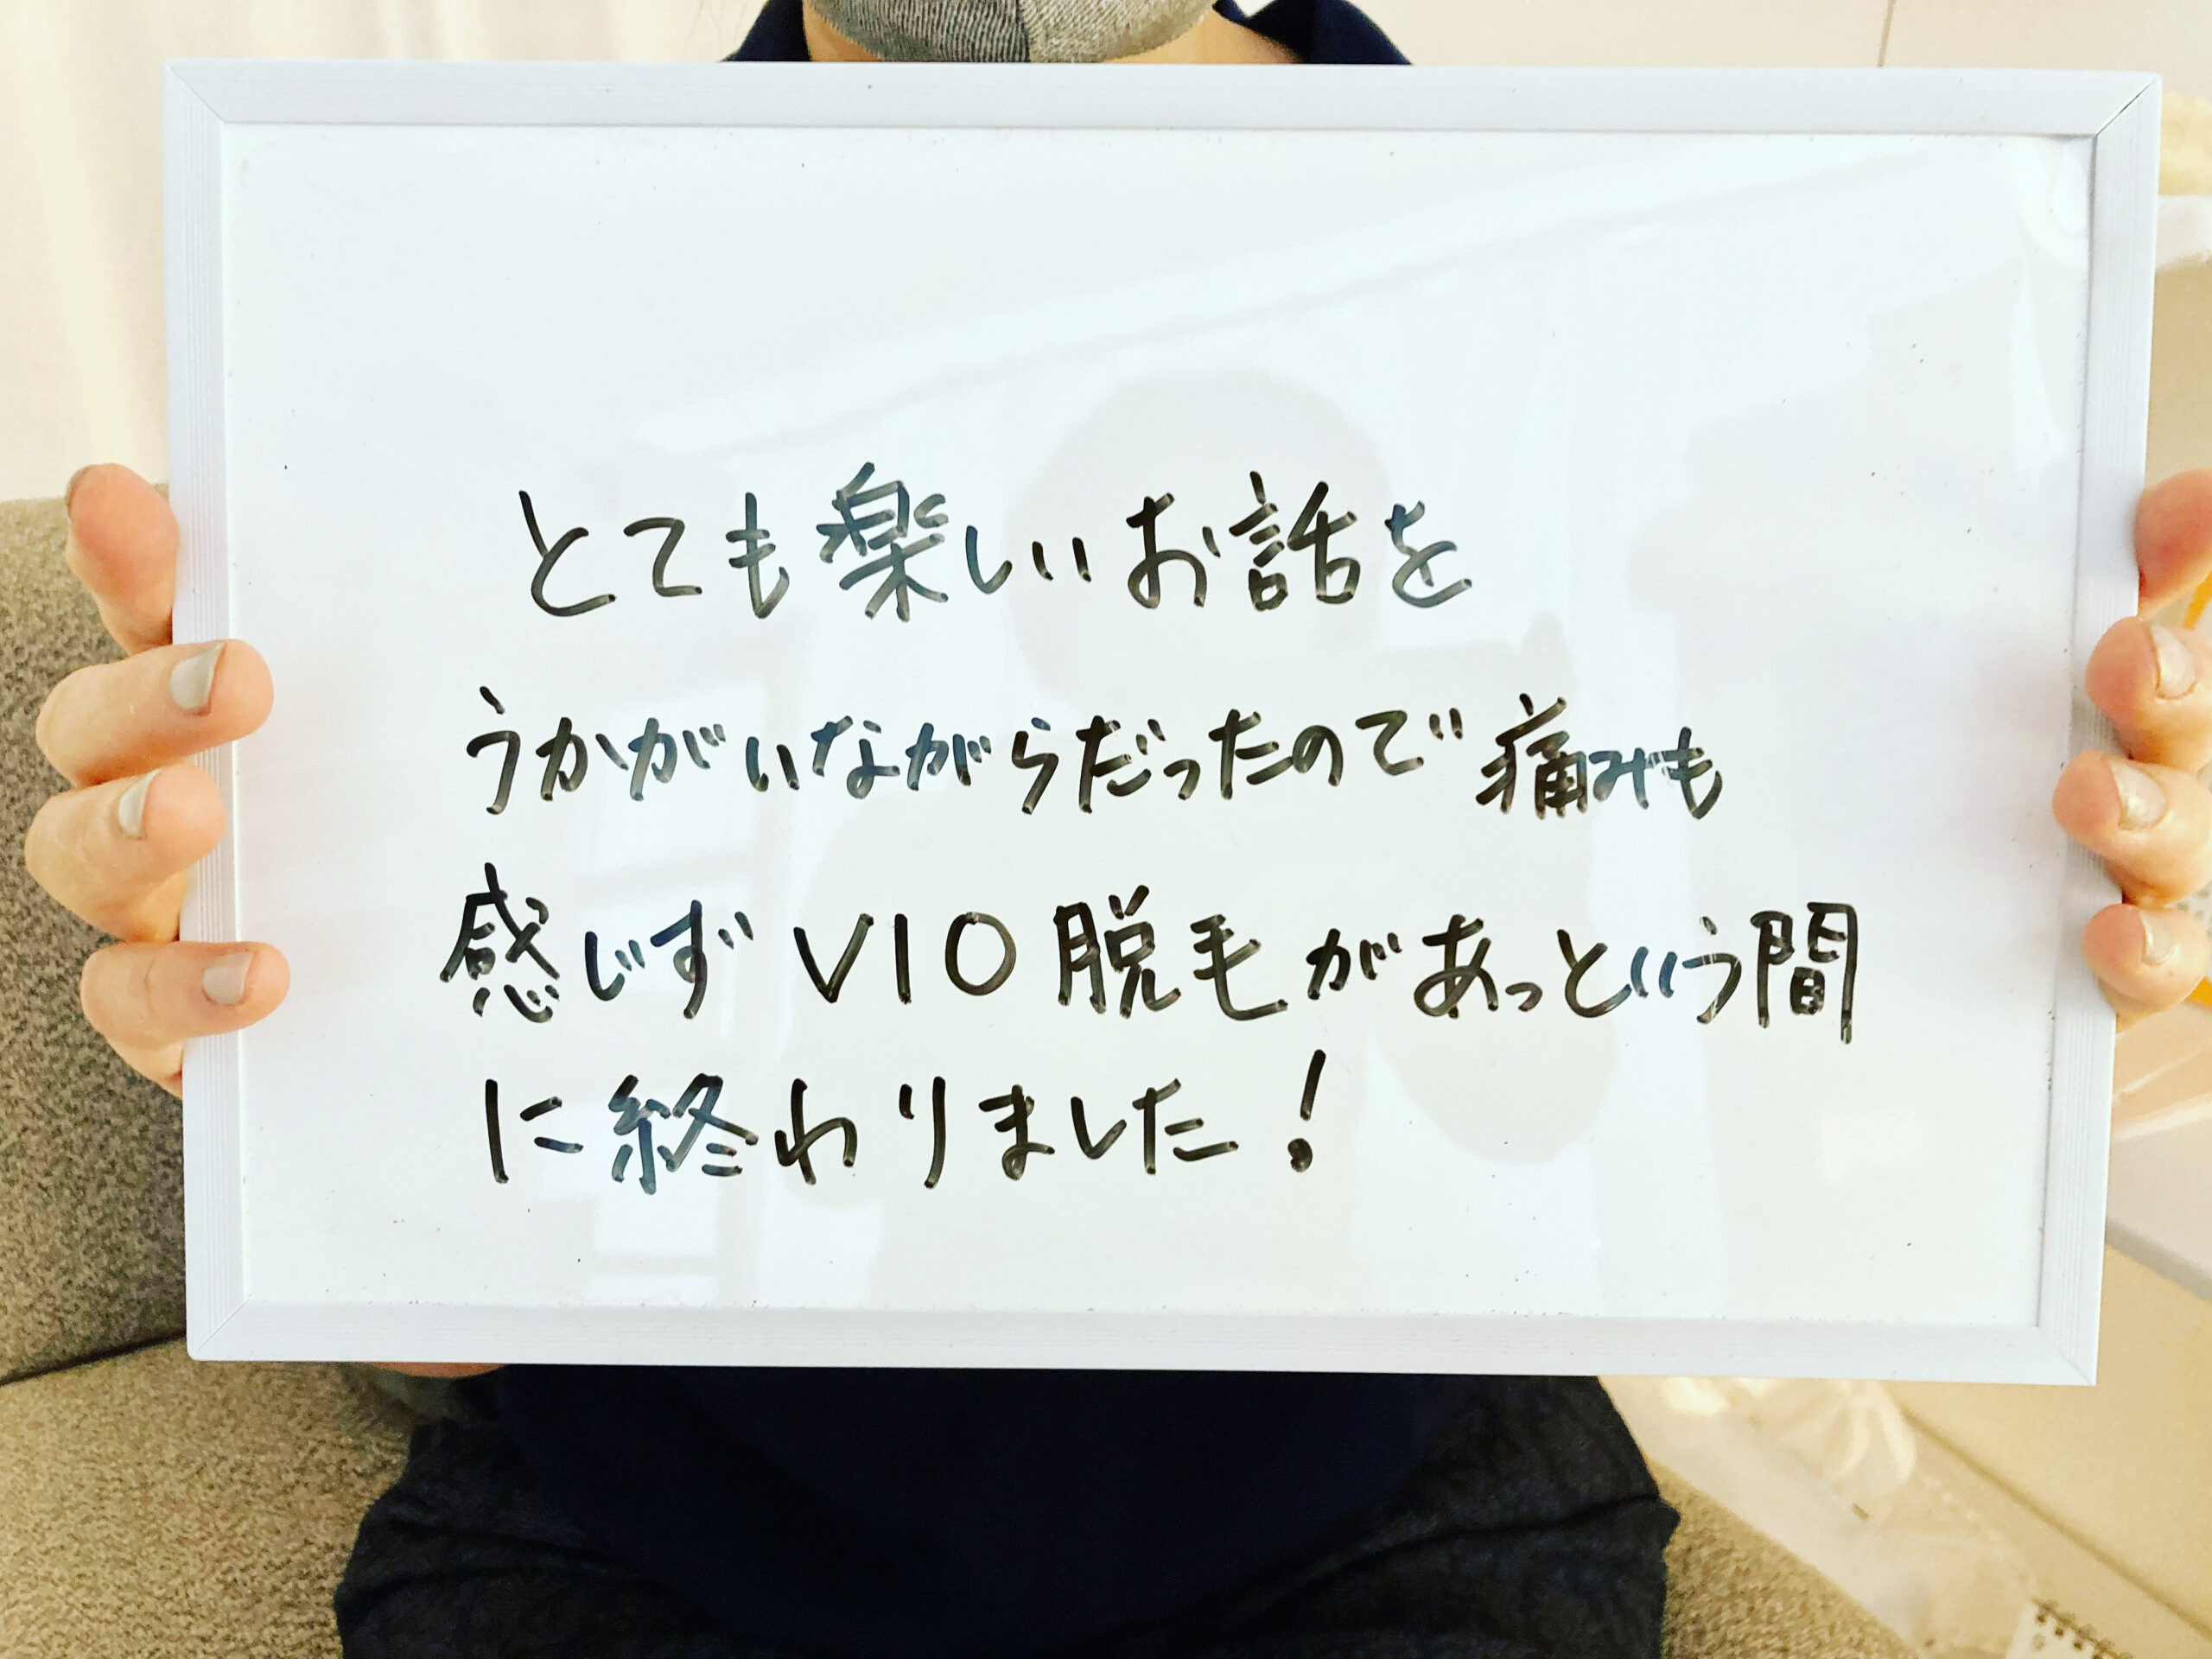 とても楽しいお話を
うかがいながらだったので痛みも
感じずVIO脱毛があっという間
に終わりました!